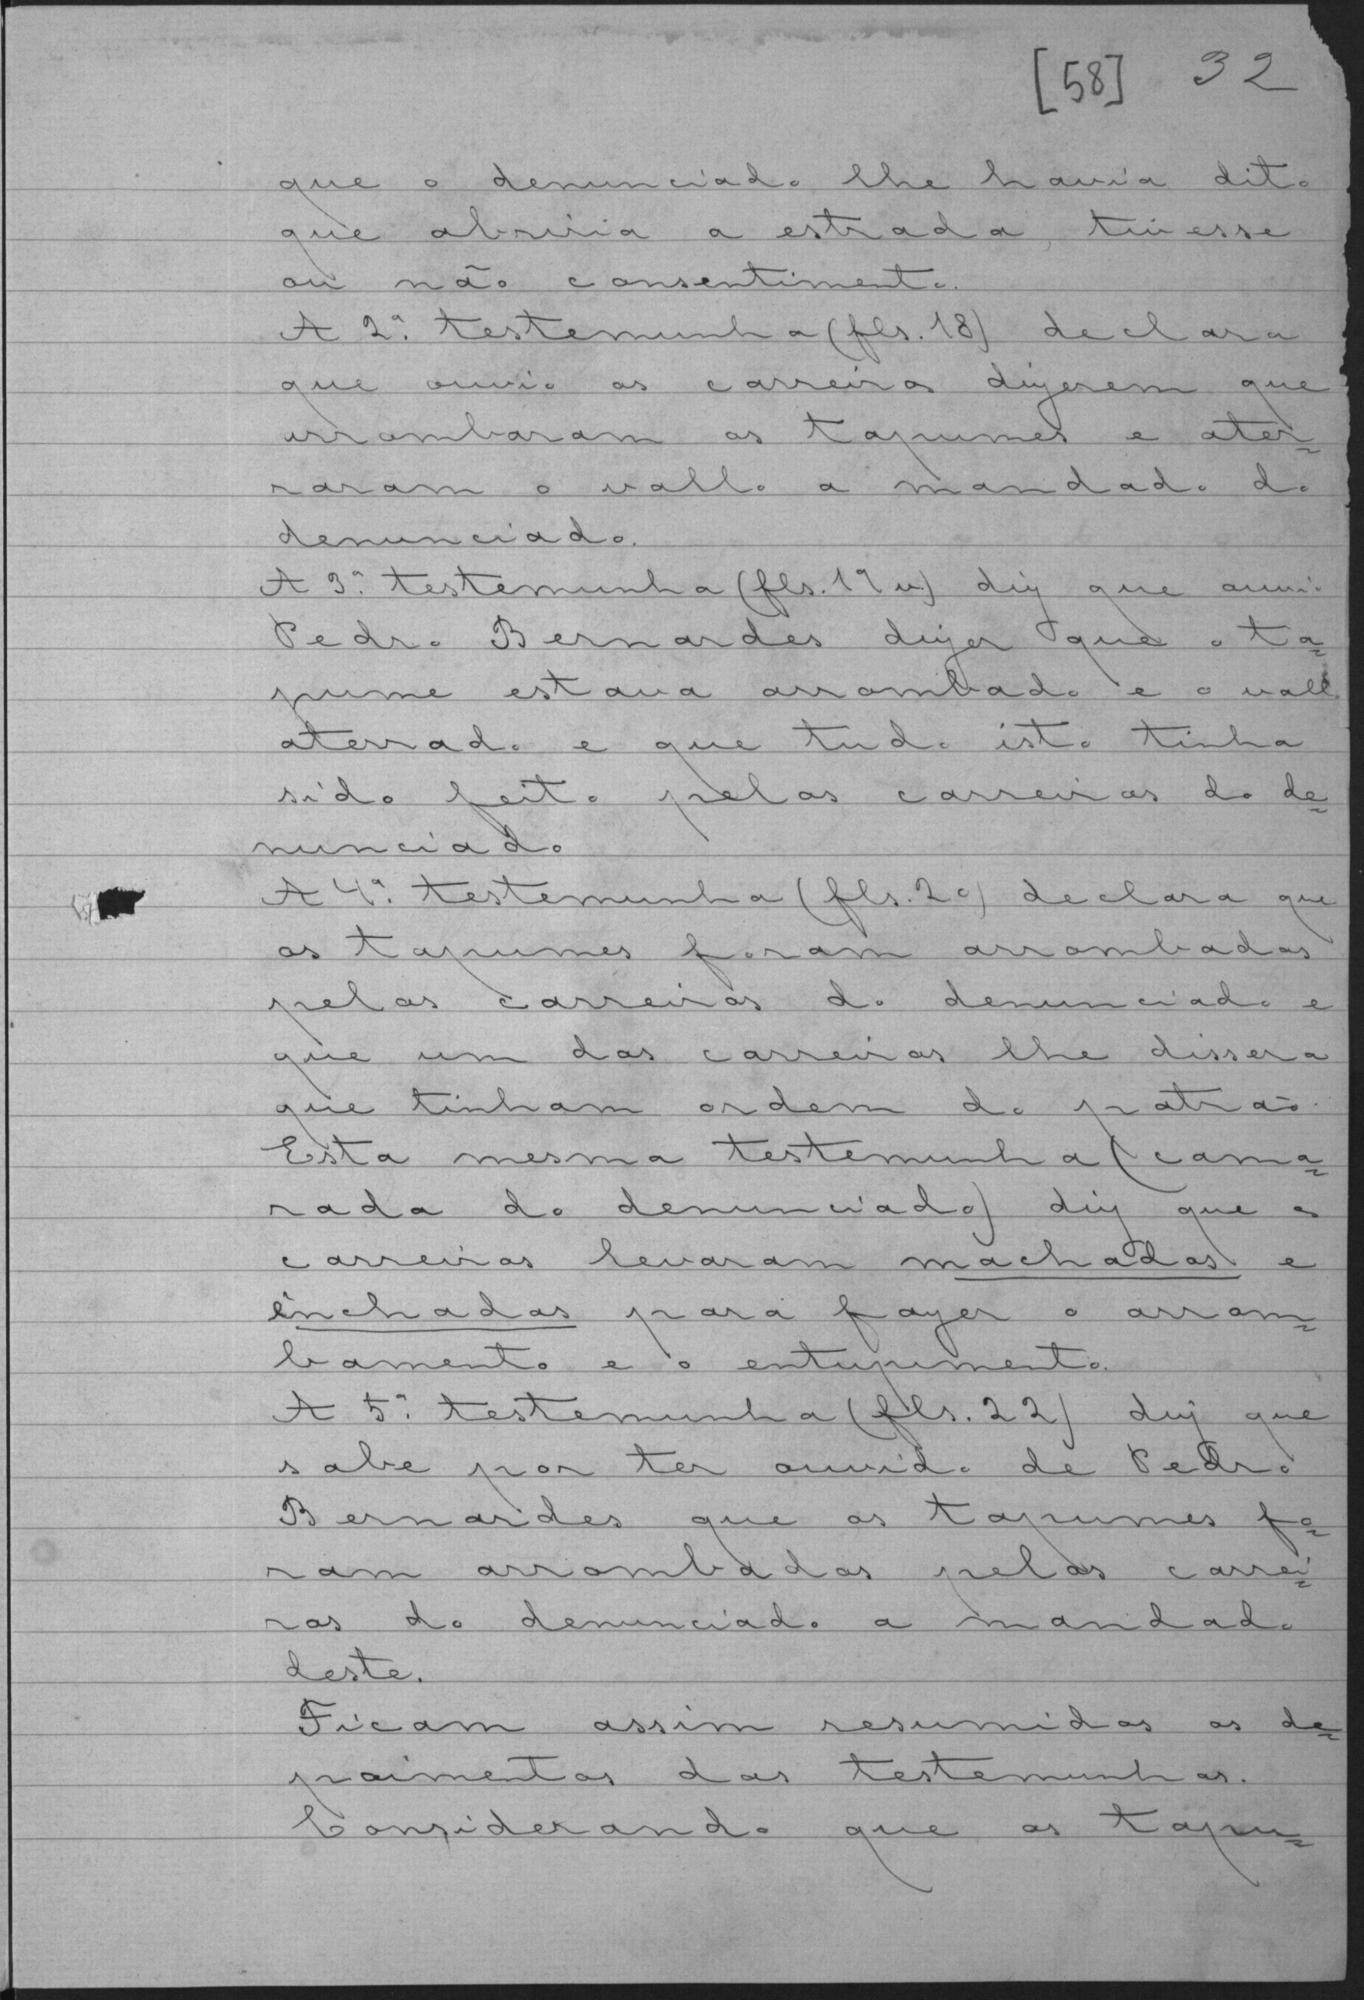 [58] 32
que o denunciado lhe havia dito
que abriria a estrada, tivesse
ou não consentimento.
A 2ª. testemunha (fls. 18) declara
que ouvio os carreiros dizerem que
arrombaram os tapumes e ater-
raram o vallo a mandado do
denunciado.
A 3ª. testemunha (fls. 19 v.) diz que ouvio
Pedro Bernardes dizer que o ta-
pume estava arrombado e o vallo
aterrado e que tudo isto tinha
sido feito pelos carreiros do de-
nunciado
A 4ª. testemunha (fls. 20) declara que
os tapumes foram arrombados
pelos carreiros do denunciado e
que um dos carreiros lhe dissera
que tinham ordem do patrão.
Esta mesma testemunha (cama-
rada do denunciado) diz que os
carreiros levaram machados e
enchadas para fazer o arrom-
bamento e o entupimento.
A 5ª. testemunha (fls. 22) diz que
sabe por ter ouvido de Pedro
Bernardes que os tapumes fo-
ram arrombados pelos carrei-
ros do denunciado a mandado
deste.
Ficam assim resumidos os de-
poimentos das testemunhas.
Considerando que os tapu-